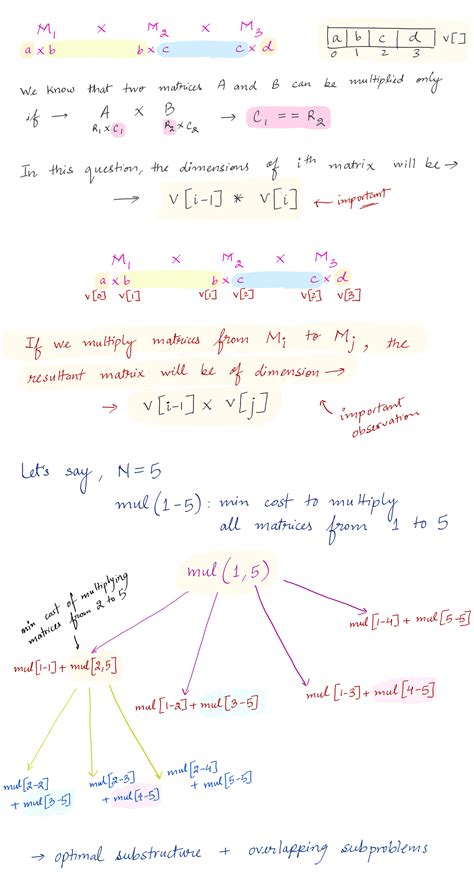 M1 x M2 x M3
a x b b x c c x d
a b c d v[]
0 1 2 3
We know that two matrices A and B can be multiplied only
if → A x B → C1 == R2
R1 x C1 R2 x C2
In this question, the dimensions of ith matrix will be →
→ v[i-1] * v[i] ← important
M1 x M2 x M3
a x b b x c c x d
v[0] v[1] v[1] v[2] v[2] v[3]
If we multiply matrices from Mi to Mj, the
resultant matrix will be of dimension →
→ v[i-1] x v[j]
important
observation
Let's say, N=5
mul(1-5): min cost to multiply
all matrices from 1 to 5
mul(1,5)
min cost of multiplying
matrices from 2 to 5
mul[1-4] + mul[5-5]
mul[1-1] + mul[2,5]
mul[1-2] + mul[3-5]
mul[1-3] + mul[4-5]
mul[2-2]
+ mul[3-5]
mul[2-3]
+ mul[4-5]
mul[2-4]
+ mul[5-5]
→ optimal substructure + overlapping subproblems